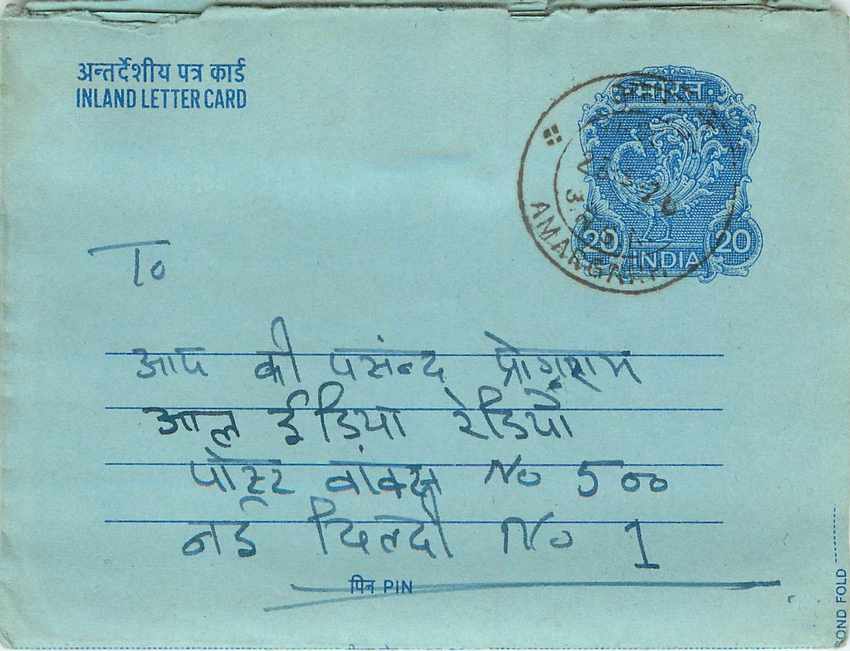 अन्तर्देशीय पत्र कार्ड
INLAND LETTER CARD
20 20
INDIA
AMARGARH
To
आप की पसंन्द प्रोग्राम
आल ईंडिया रेडियो
पोस्ट बांक्स No 500
नई दिल्ली No 1
पिन PIN
OND FOLD